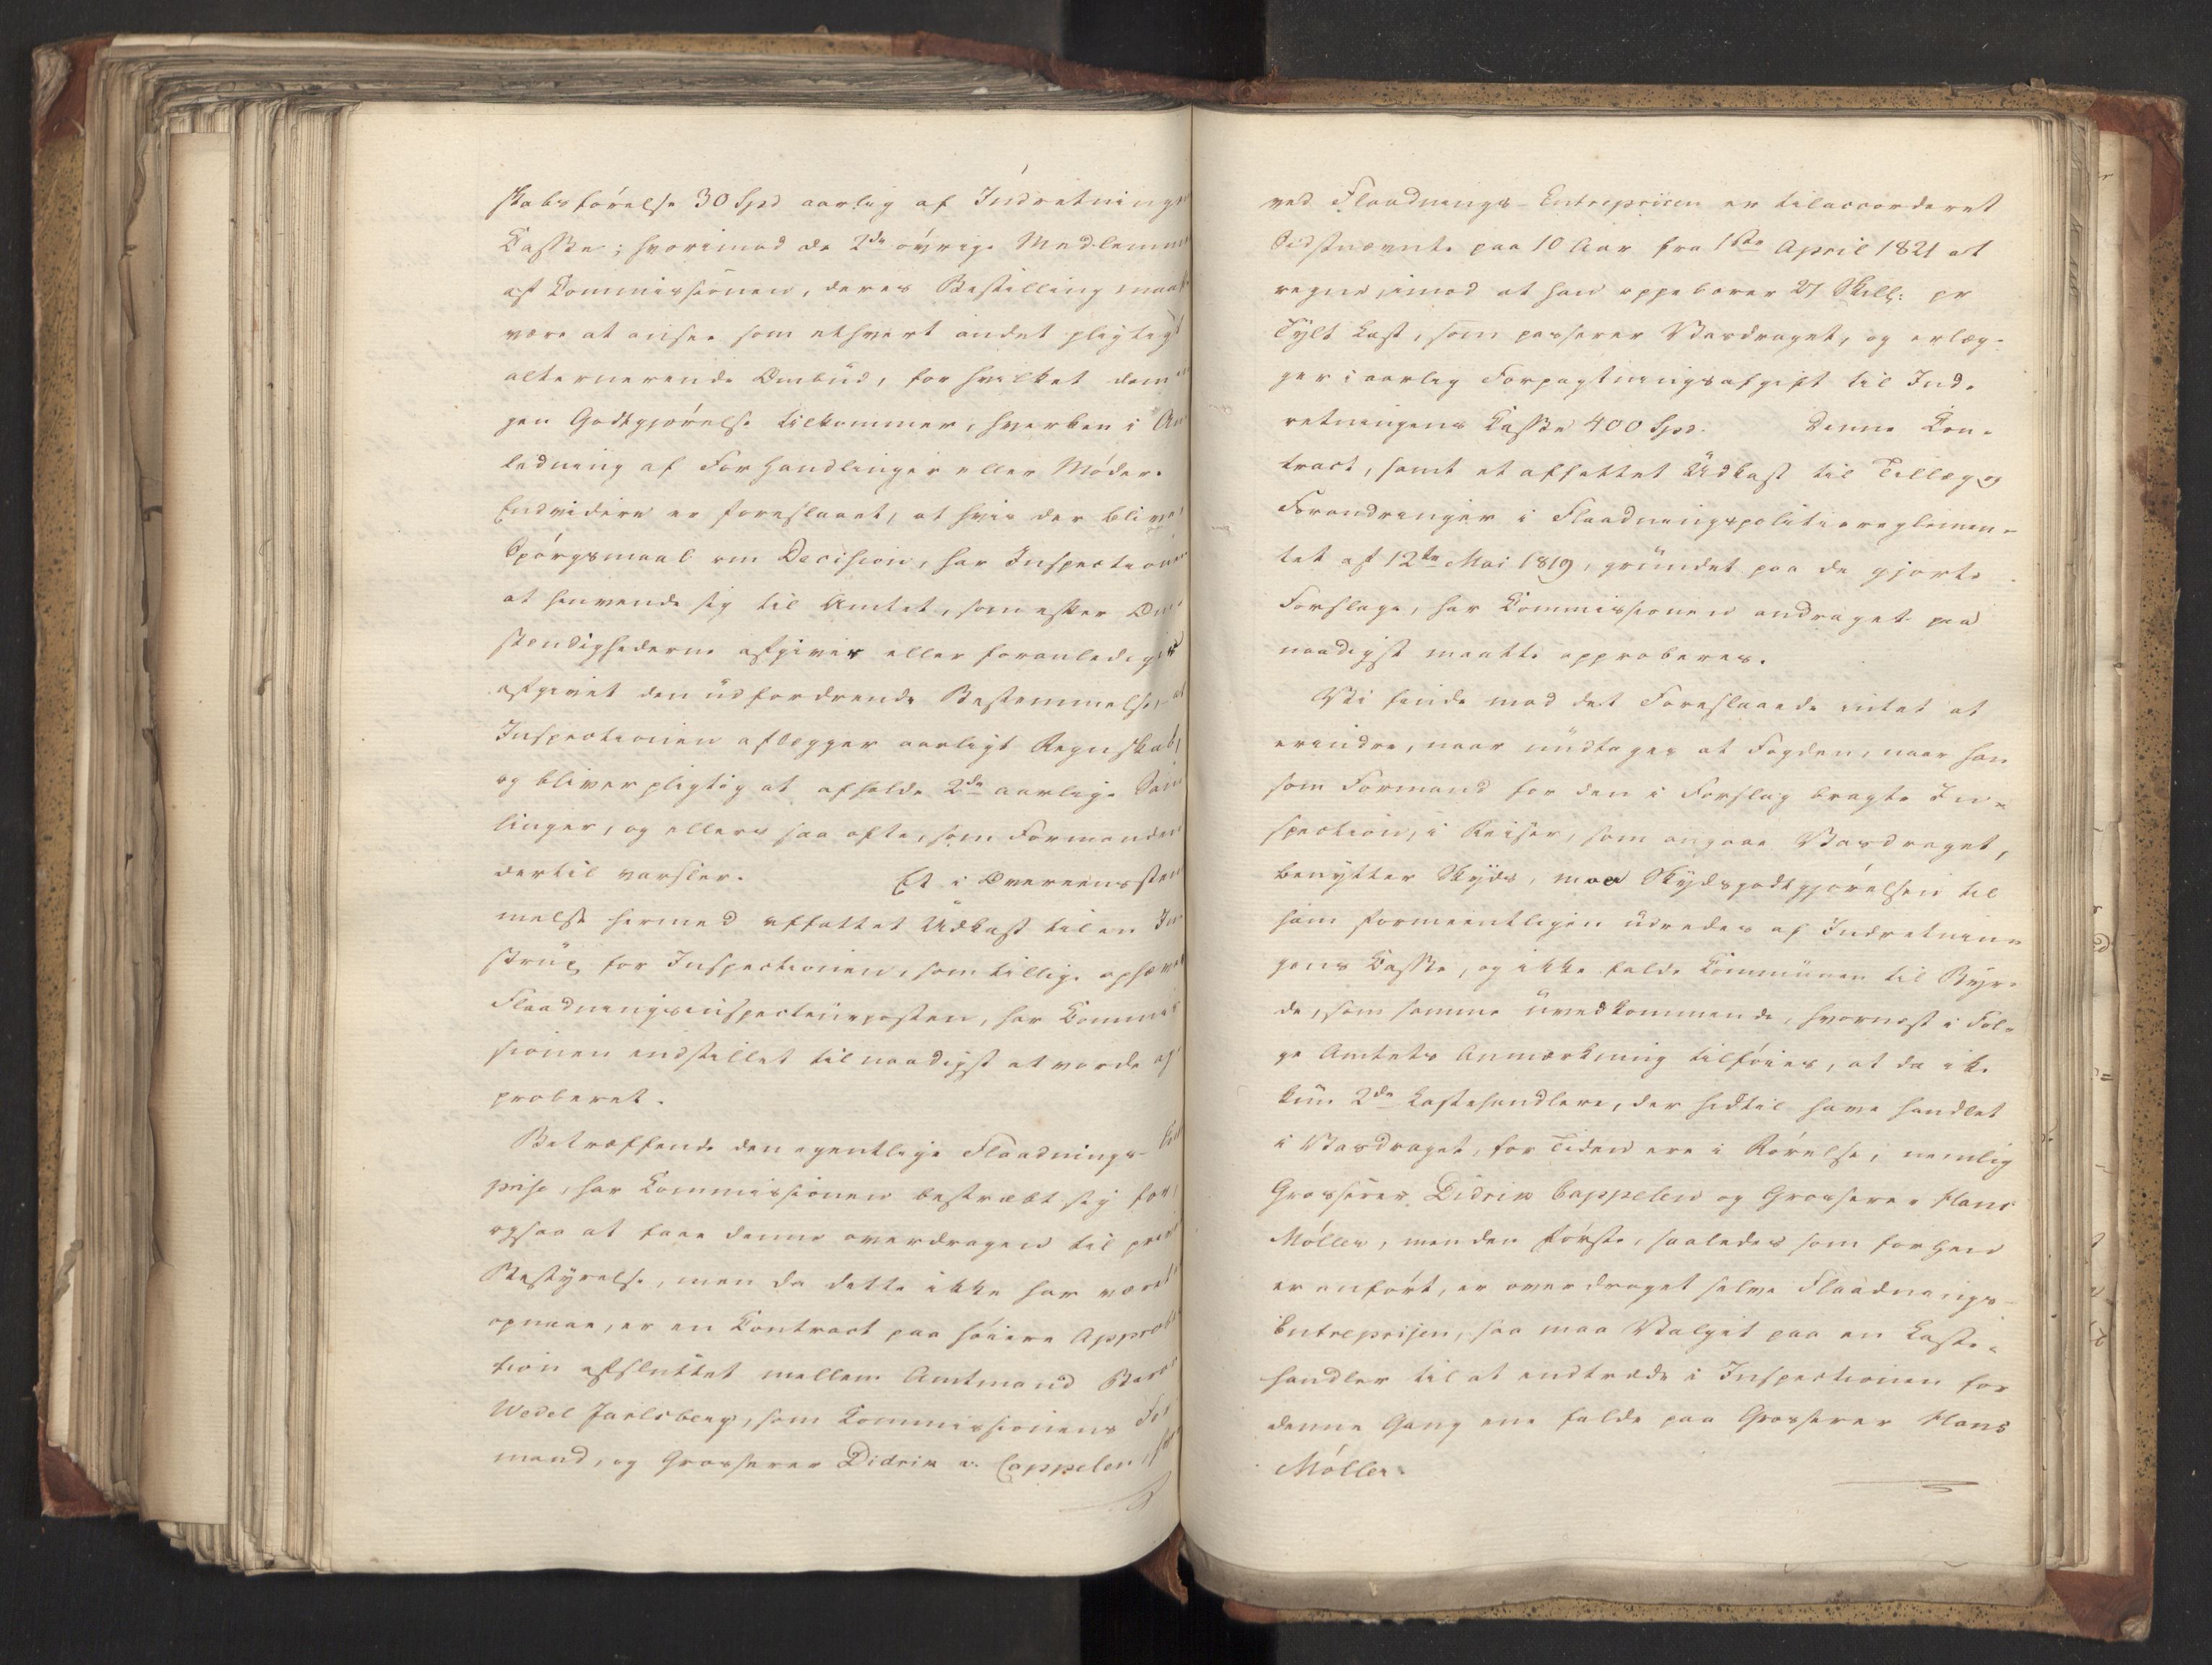 skabsførelse 30 Spd aarlig af Indretningens
Casse; hvorimod de 2de øvrige Medlemmer
af Kommissionen, deres Bestilling maatte
være at ansee som ethvert andet pligtigt
alternerende Ombüd, for hvilket dem in
gen Godtgjørelse tilkommer, hverken i An
ledning af Forhandlinger eller Møder.
Endvidere er foreslaaet, at hvis der bliver
Spørgsmaal om Decision, har Inspectionen
at henvende sig til Amtet, som efter Om
stændighederne afgiver eller foranlediger
afgivet den üdfordrende Bestemmelse, at
Inspectionen aflægger aarligt Regnskab,
og bliver pligtig at afholde 2de aarlige Sam
linger, og ellers saa ofte, som Formanden
dertil varsler. Et i Overeensstem
melse hermed affattet Üdkast til en In
strüx for Inspectionen, som tillige ophæver
Flaadningsinspecteürposten, har Kommis
sionen indstillet til naadigst at vorde ap
proberet.
Betræffende den egentlige Flaadnings-Entre
prise, har Kommissionen bestræbt sig for,
ogsaa at faae denne overdragen til privat
Bestyrelse, men da dette ikke har været at
opnaae, er en Kontract paa høiere Approba
tion afsluttet mellem Amtmand Baron
Wedel Jarlsberg, som Kommissionens For
mand, og Grosserer Didrik v. Cappelen, hvor
ved Flaadnings-Entreprisen er tilaccorderet
Sidstnævnte paa 10 Aar fra 1ste April 1821 at
regne, imod at han oppebærer 27 Skill: pr
Tylt Last, som passerer Vasdraget, og erlæg-
ger i aarlig Forpagtningsafgift til Ind-
retningens Casse 400 Spd. Denne Kon-
tract, samt et affattet Üdkast til Tillæg og
Forandringer i Flaadningspolitiereglemen-
tet af 12te Mai 1819, gründet paa de gjorte
Forslage, har Kommissionen andraget paa
naadigst maatte approberes.
Vi finde mod det Foreslaaede intet at
erindre, naar ündtages at Fogden, naar han
som Formand for den i Forslag bragte In-
spection, i Reiser, som angaae Vasdraget,
benytter Skyds, maa Skydsgodtgjørelsen til
ham formeentligen üdredes af Indretnin-
gens Casse, og ikke falde Kommünen til Byr-
de, som samme üvedkommende, hvornæst i Føl-
ge Amtets Anmærkning tilføies, at da ikk
kün 2de Lastehandlere, der hidtil have handlet
i Vasdraget, for Tiden ere i Rørelse, nemlig
Grosserer Didrik Cappelen og Grosserer Hans
Møller, men den første, saaledes som forhen
er anført, er overdraget selve Flaadnings-
Entreprisen, saa maa Valget paa en Laste-
handler til at indtræde i Inspectionen for
denne Gang ene falde paa Grosserer Hans
Møller.